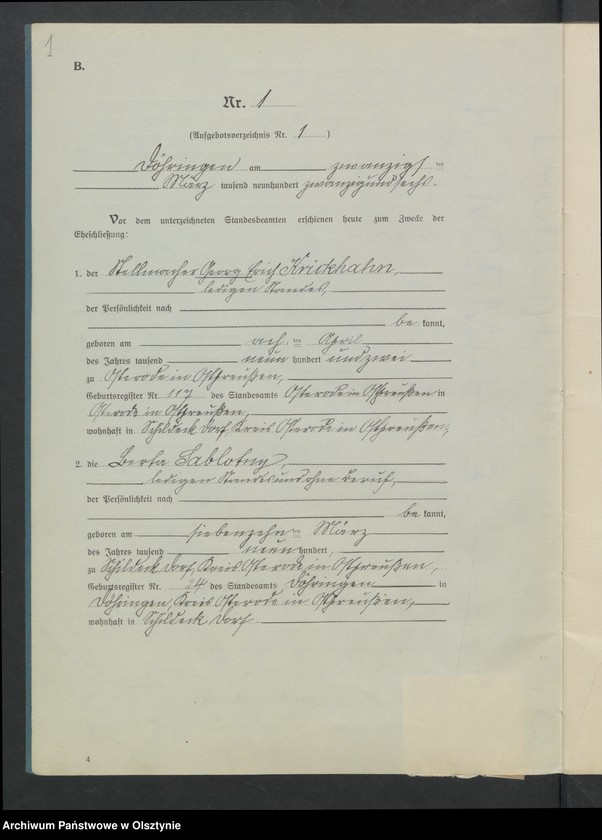 1
B.
Nr. 1
(Aufgebotsverzeichnis Nr. 1)
Döhringen am zwanzigsten
März tausend neunhundert zwanzigundsechs.
Vor dem unterzeichneten Standesbeamten erschienen heute zum Zwecke der
Eheschließung:
1. der Stellmacher Georg Erich Krickhahn,
ledigen Standes,
der Persönlichkeit nach
be kannt,
geboren am acht ten April
des Jahres tausend neun hundert und zwei
zu Osterode in Ostpreußen,
Geburtsregister Nr. 117 des Standesamts Osterode in Ostpreußen in
Osterode in Ostpreußen,
wohnhaft in Schildeck Dorf, Kreis Osterode in Ostpreußen,
2. die Berta Sablotny,
ledigen Standes und ohne Beruf,
der Persönlichkeit nach
be kannt,
geboren am siebenzehn ten März
des Jahres tausend neun hundert,
zu Schildeck Dorf, Kreis Osterode in Ostpreußen,
Geburtsregister Nr. 24 des Standesamts Döhringen in
Döhringen, Kreis Osterode in Ostpreußen,
wohnhaft in Schildeck Dorf
4
Archiwum Państwowe w Olsztynie